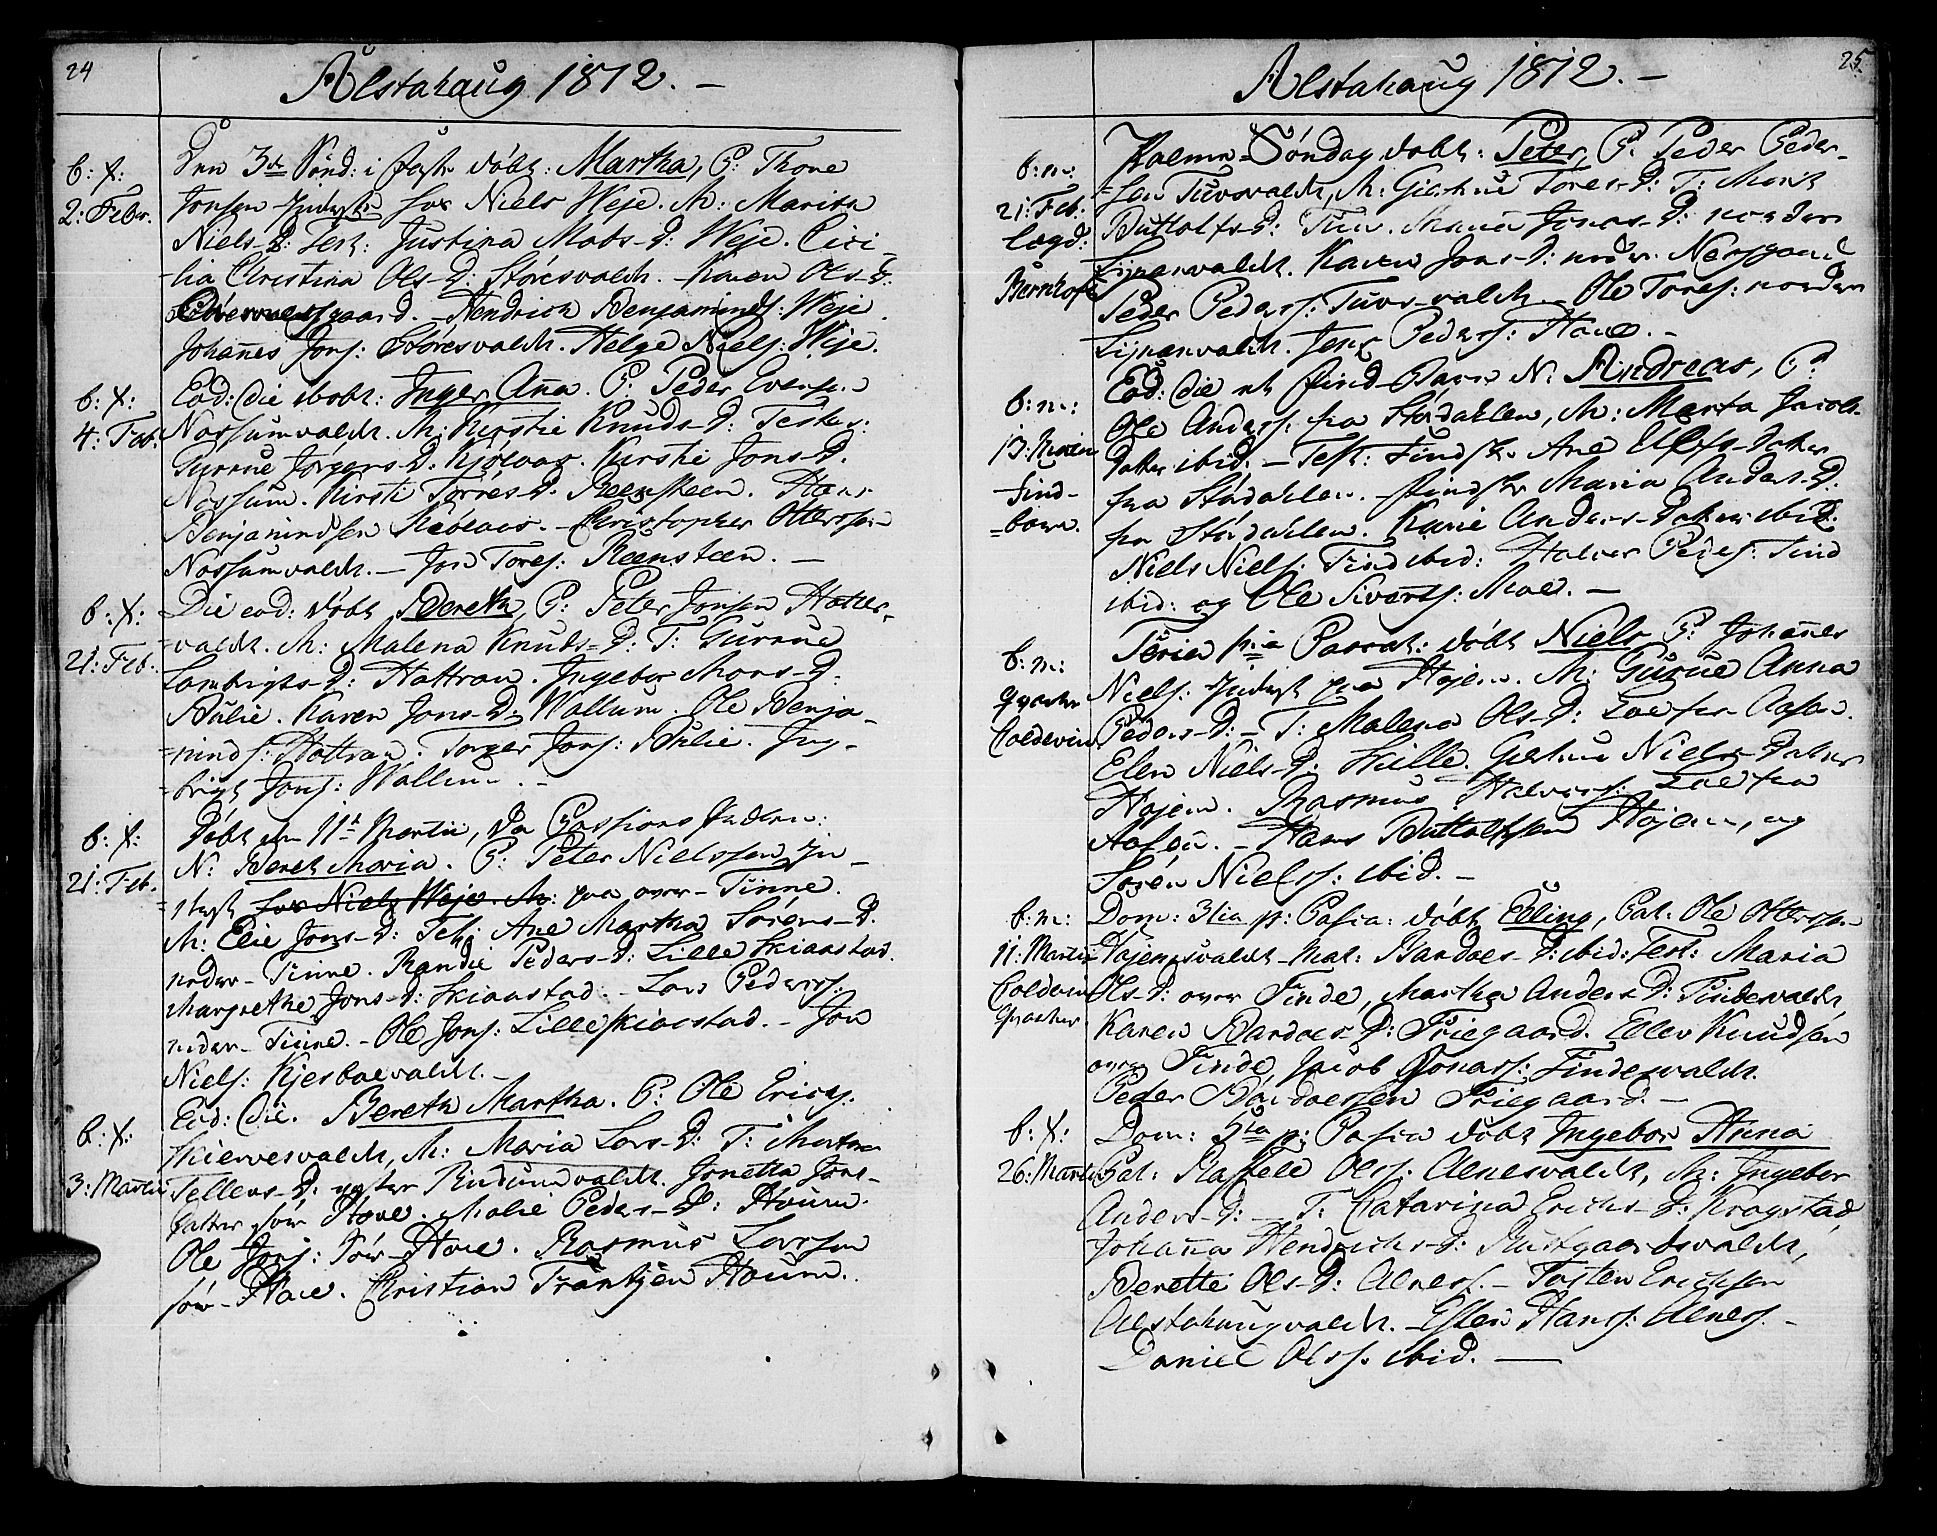 24
Alstahaug 1812. –
b: f:
2: Febr.
Den 3die Sönd: i fast döbt: Martha, P: Thore
Jonsen Inderst hos Niels Weje. M: Marita
Niels-D: Test: Justina Mobs-D: Weje. Cici-
lia Christina Ols-D: Störesvaldt. – Karen Ols-D:
gaard. – Hendrich Benjaminds: Weje.
Johañes Jons: Störesvaldt. Helge Niels: Weje.
b: f:
4: Feb:
Eod: die döbt: Inger Aña. P: Peder Evensen
Nossumvaldt. M: Kirstie Knuds-D: Testes:
Gurrue Jörgens-D: Kjölvag. Kirsti Jons-D.
Nossum. Kirsti Torres-D. Reensteen. Hans
Benjamindsen. – Christopher Ottersen
Nossumvaldt. – Jon Tores: Reensteen. –
b: f:
21: Feb:
Die eod: döbt Bereth, P: Peter Jonsen Hatter-
valdt. M: Malena Knuds-D: T: Gurrue
Lambrigts-D: Hattran. Ingebor Mons-D:
Bulie. Karen Jons-D: Wallum. Ole Benja-
minds: Hattran. Torger Jons: Bulie. Ing-
brigt Jons: Wallum. –
b: f:
21: Feb.
Döbt den 11te Martii, da Passions
N: Beret Maria. P: Peter Nielssen In-
derst hos Niels Weje. M: paa over-Tinne.
M: Elie Jons-D: Test: Ane Martha Sörens-D.
neder-Tinne. Randie Peders-D: Lille Skiaastad.
Margrethe Jons-D: Skiaastad. – Lars Peders:
neder-Tinne. – Ole Jons: Lilleskiaastad. – Jon
Niels: Kjesboevaldt. –
b: f:
3: Martii
Eod: Die. Bereth Martha. P: Ole Ericks:
Skiervesvaldt, M: Maria Lars-D: T: Martha
Tellevs-D: Rindumvaldt. Jonetta Jons-
datter sör Hove. Malie Peders-D: Houm.
Ole Jons: Sör-Hove. Rasmus Larssen
sör-Hove. Christian Frantzen Houm.
25.
Alstahaug 1812. –
b: m:
21: Feb:
Palma-Söndag döbt: Peter, P. Peder Peder-
sen Tuvsvaldt, M: Giertrue Tores-D: T: Marit
Buttolfs-D: Tuv. Maria Jonas-D: norden
valdt. Karen Jons-D: neder. Nessgaard
Peder Peders: Tuvs-valdt. – Ole Tores: norden
valdt. Jens Peders: Hove. –
b: m:
13: Martii
find-
barn.
Eod: die et find-Barn N: Andreas, P:
Ole Anders: fra Stördahlen, M: Marta Jacobs-
datter ibid. – Test: Findske Ane Elefs-datter
fra Stördahlen. – findske Maria Anders-D:
fra Stördahlen. Karie Anders-datter ibid:
Niels Niels: Find ibid: Halver Peders: Find
ibid: og Ole Siverts: Moe. –
b: m:
Feria 1ma Pascat: döbt Niels P: Johañes
Niels: Inderst paa Hojem. M: Gurue Anna
Peders-D: – T: Malena Ols-D: Loefra Aasen.
Elen Niels-D: Hille. Giertrue Niels-Datter
Hojem. Rasmus Halvers: Loefra
Aasen. – Hans Buttolfsen Hojem, og
Sören Nielss: ibid. –
b: m:
11: Martii
Dom: 3tia p: Pasca: döbt Elling, Pat: Ole Otterss:
Hojemsvaldt. Mat: Bardoes-D: ibid: Test: Maria
Ols-D: over Finde, Martha Anders D: Findesvaldt,
Karen Bardoes-D: Friegaard. Ellev Knudsen
over Finde, Jacob Jonass: Findesvaldt.
Peder Bardoessen Friegaard. –
b: f:
26: Martii
Dom: 5ta p: Pasca döbt Ingebor Anna
Pat: Raffele Olss: Alnesvaldt, M: Ingebor
Anders-D: – T: Catarina Erichs-D: Kragstad
Johaña Hendrichs-D: Rustgaardsvaldt,
Berette Ols-D: Alness. – Tosten Erichsen
Alstahaugvaldt. – Esten Hanss: Alness. –
Daniel Olss. ibid. —